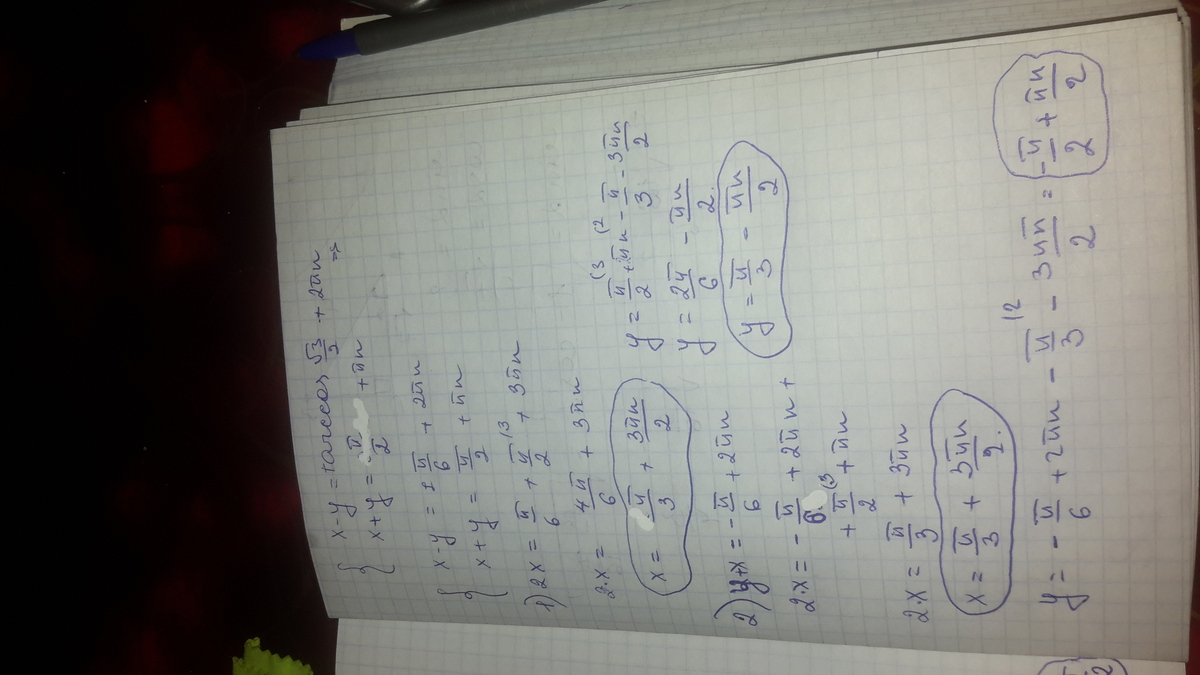 { x-y = ±arccos √3/2 + 2πn
x+y = π/2 + πn =>
{ x-y = ±π/6 + 2πn
x+y = π/2 + πn
1) 2x = π/6 + π/2 (3 + 3πn
2·x = 4π/6 + 3πn
x = π/3 + 3πn/2
y = π/2 (3 + πn - π/3 (2 - 3πn/2
y = 2π/6 - πn/2.
y = π/3 - πn/2
2) y+x = -π/6 + 2πn
2·x = -π/6 + 2πn +
+ π/2 (3 + πn
2·x = π/3 + 3πn
x = π/3 + 3πn/2.
y = -π/6 + 2πn - π/3 (2 - 3πn/2 = -π/2 + πn/2